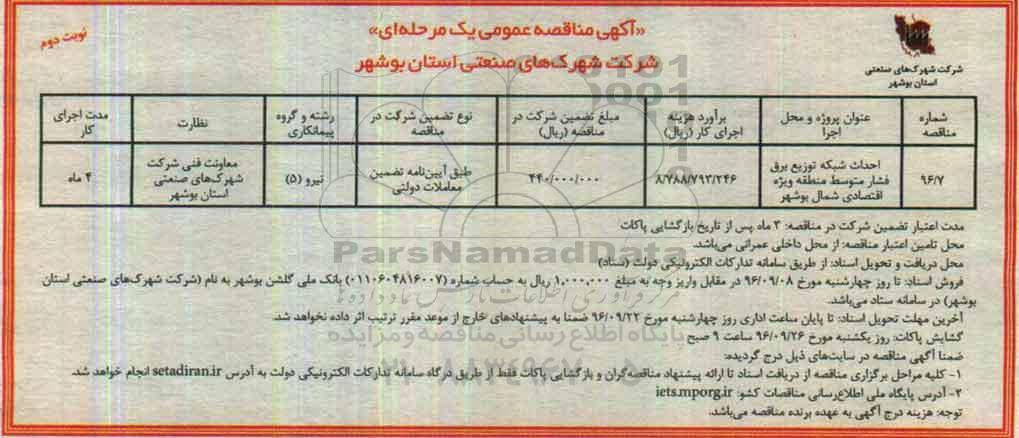 «آگهی مناقصه عمومی یک مرحله‌ای»
نوبت دوم
شرکت شهرک‌های صنعتی استان بوشهر
شرکت شهرک‌های صنعتی
استان بوشهر
شماره مناقصه
عنوان پروژه و محل اجرا
برآورد هزینه اجرای کار (ریال)
مبلغ تضمین شرکت در مناقصه (ریال)
نوع تضمین شرکت در مناقصه
رشته و گروه پیمانکاری
نظارت
مدت اجرای کار
۹۶/۷
احداث شبکه توزیع برق فشار متوسط منطقه ویژه اقتصادی شمال بوشهر
۸/۷۸۸/۷۹۳/۲۴۶
۴۴۰/۰۰۰/۰۰۰
طبق آیین‌نامه تضمین معاملات دولتی
نیرو (۵)
معاونت فنی شرکت شهرک‌های صنعتی استان بوشهر
۴ ماه
مدت اعتبار تضمین شرکت در مناقصه: ۳ ماه پس از تاریخ بازگشایی پاکات
محل تامین اعتبار مناقصه: از محل داخلی عمرانی می‌باشد.
محل دریافت و تحویل اسناد: از طریق سامانه تدارکات الکترونیکی دولت (ستاد)
فروش اسناد: تا روز چهارشنبه مورخ ۹۶/۰۹/۰۸ در مقابل واریز وجه به مبلغ ۱,۰۰۰,۰۰۰ ریال به حساب شماره (۰۱۱۰۶۰۴۸۱۶۰۰۷) بانک ملی گلشن بوشهر به نام (شرکت شهرک‌های صنعتی استان
بوشهر) در سامانه ستاد می‌باشد.
آخرین مهلت تحویل اسناد: تا پایان ساعت اداری روز چهارشنبه مورخ ۹۶/۰۹/۲۲ ضمنا به پیشنهادهای خارج از موعد مقرر ترتیب اثر داده نخواهد شد.
گشایش پاکات: روز یکشنبه مورخ ۹۶/۰۹/۲۶ ساعت ۹ صبح
ضمنا آگهی مناقصه در سایت‌های ذیل درج گردیده:
۱- کلیه مراحل برگزاری مناقصه از دریافت اسناد تا ارائه پیشنهاد مناقصه‌گران و بازگشایی پاکات فقط از طریق درگاه سامانه تدارکات الکترونیکی دولت به آدرس setadiran.ir انجام خواهد شد.
۲- آدرس پایگاه ملی اطلاع‌رسانی مناقصات کشور: iets.mporg.ir
توجه: هزینه درج آگهی به عهده برنده مناقصه می‌باشد.
ParsNamadData
پایگاه اطلاع رسانی مناقصه و مزایده